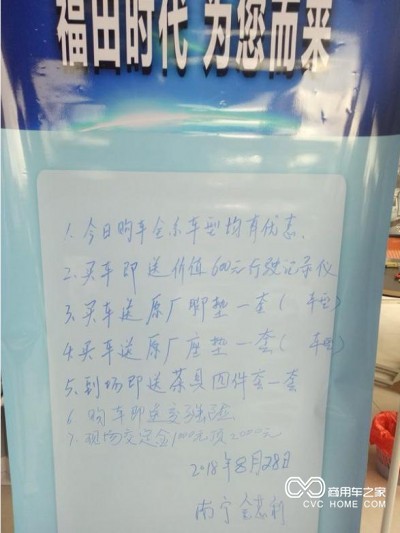 福田时代 为您而来
1. 今日购车全系车型均有优惠.
2. 买车即送价值600元行驶记录仪
3. 买车送原厂脚垫一套( 车型)
4. 买车送原厂座垫一套( 车型)
5. 到场即送茶具四件套一套
6 购车即送交强险
7. 现场交定金1000元顶2000元
2018年8月28日
南宁
商用车之家
CVC HOME.COM